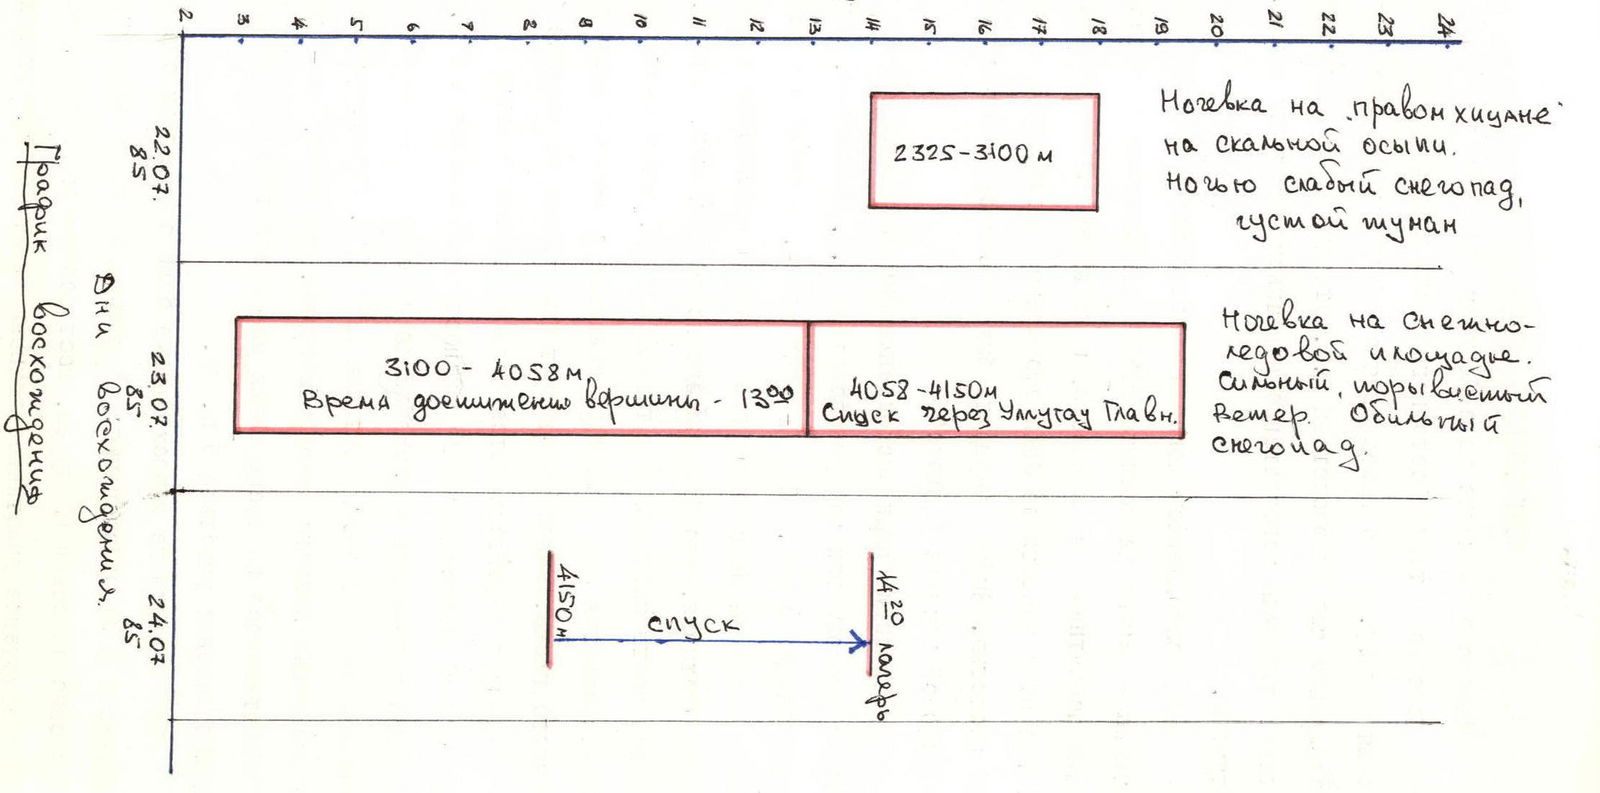 График восхождения
Дни восхождения.
2 3 4 5 6 7 8 9 10 11 12 13 14 15 16 17 18 19 20 21 22 23 24
22.07.
85
2325-3100 м
Ночевка на "правом хицане"
на скальной осыпи.
Ночью слабый снегопад,
густой туман
23.07.
85
3100 - 4058м
Время достижения вершины - 13⁰⁰
4058-4150м
Спуск через Уллутау Главн.
Ночевка на снежно-
ледовой площадке.
Сильный, порывистый
ветер. Обильный
снегопад.
24.07
85
4150 м
спуск
14 20 лагерь